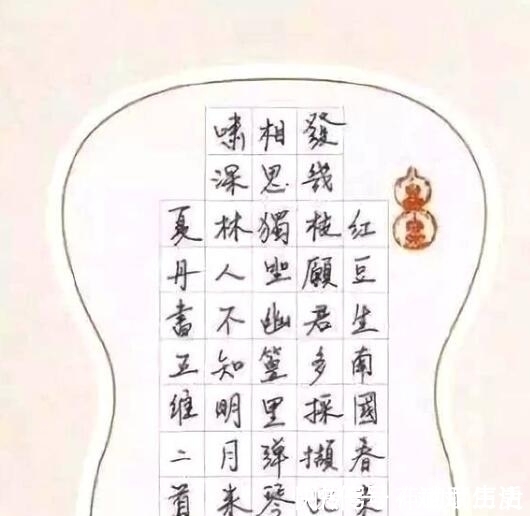 红豆生南國春来
發幾枝願君多採擷此
相思獨坐幽篁里弹琴
嘯深林人不知明月来
夏丹書王維二首